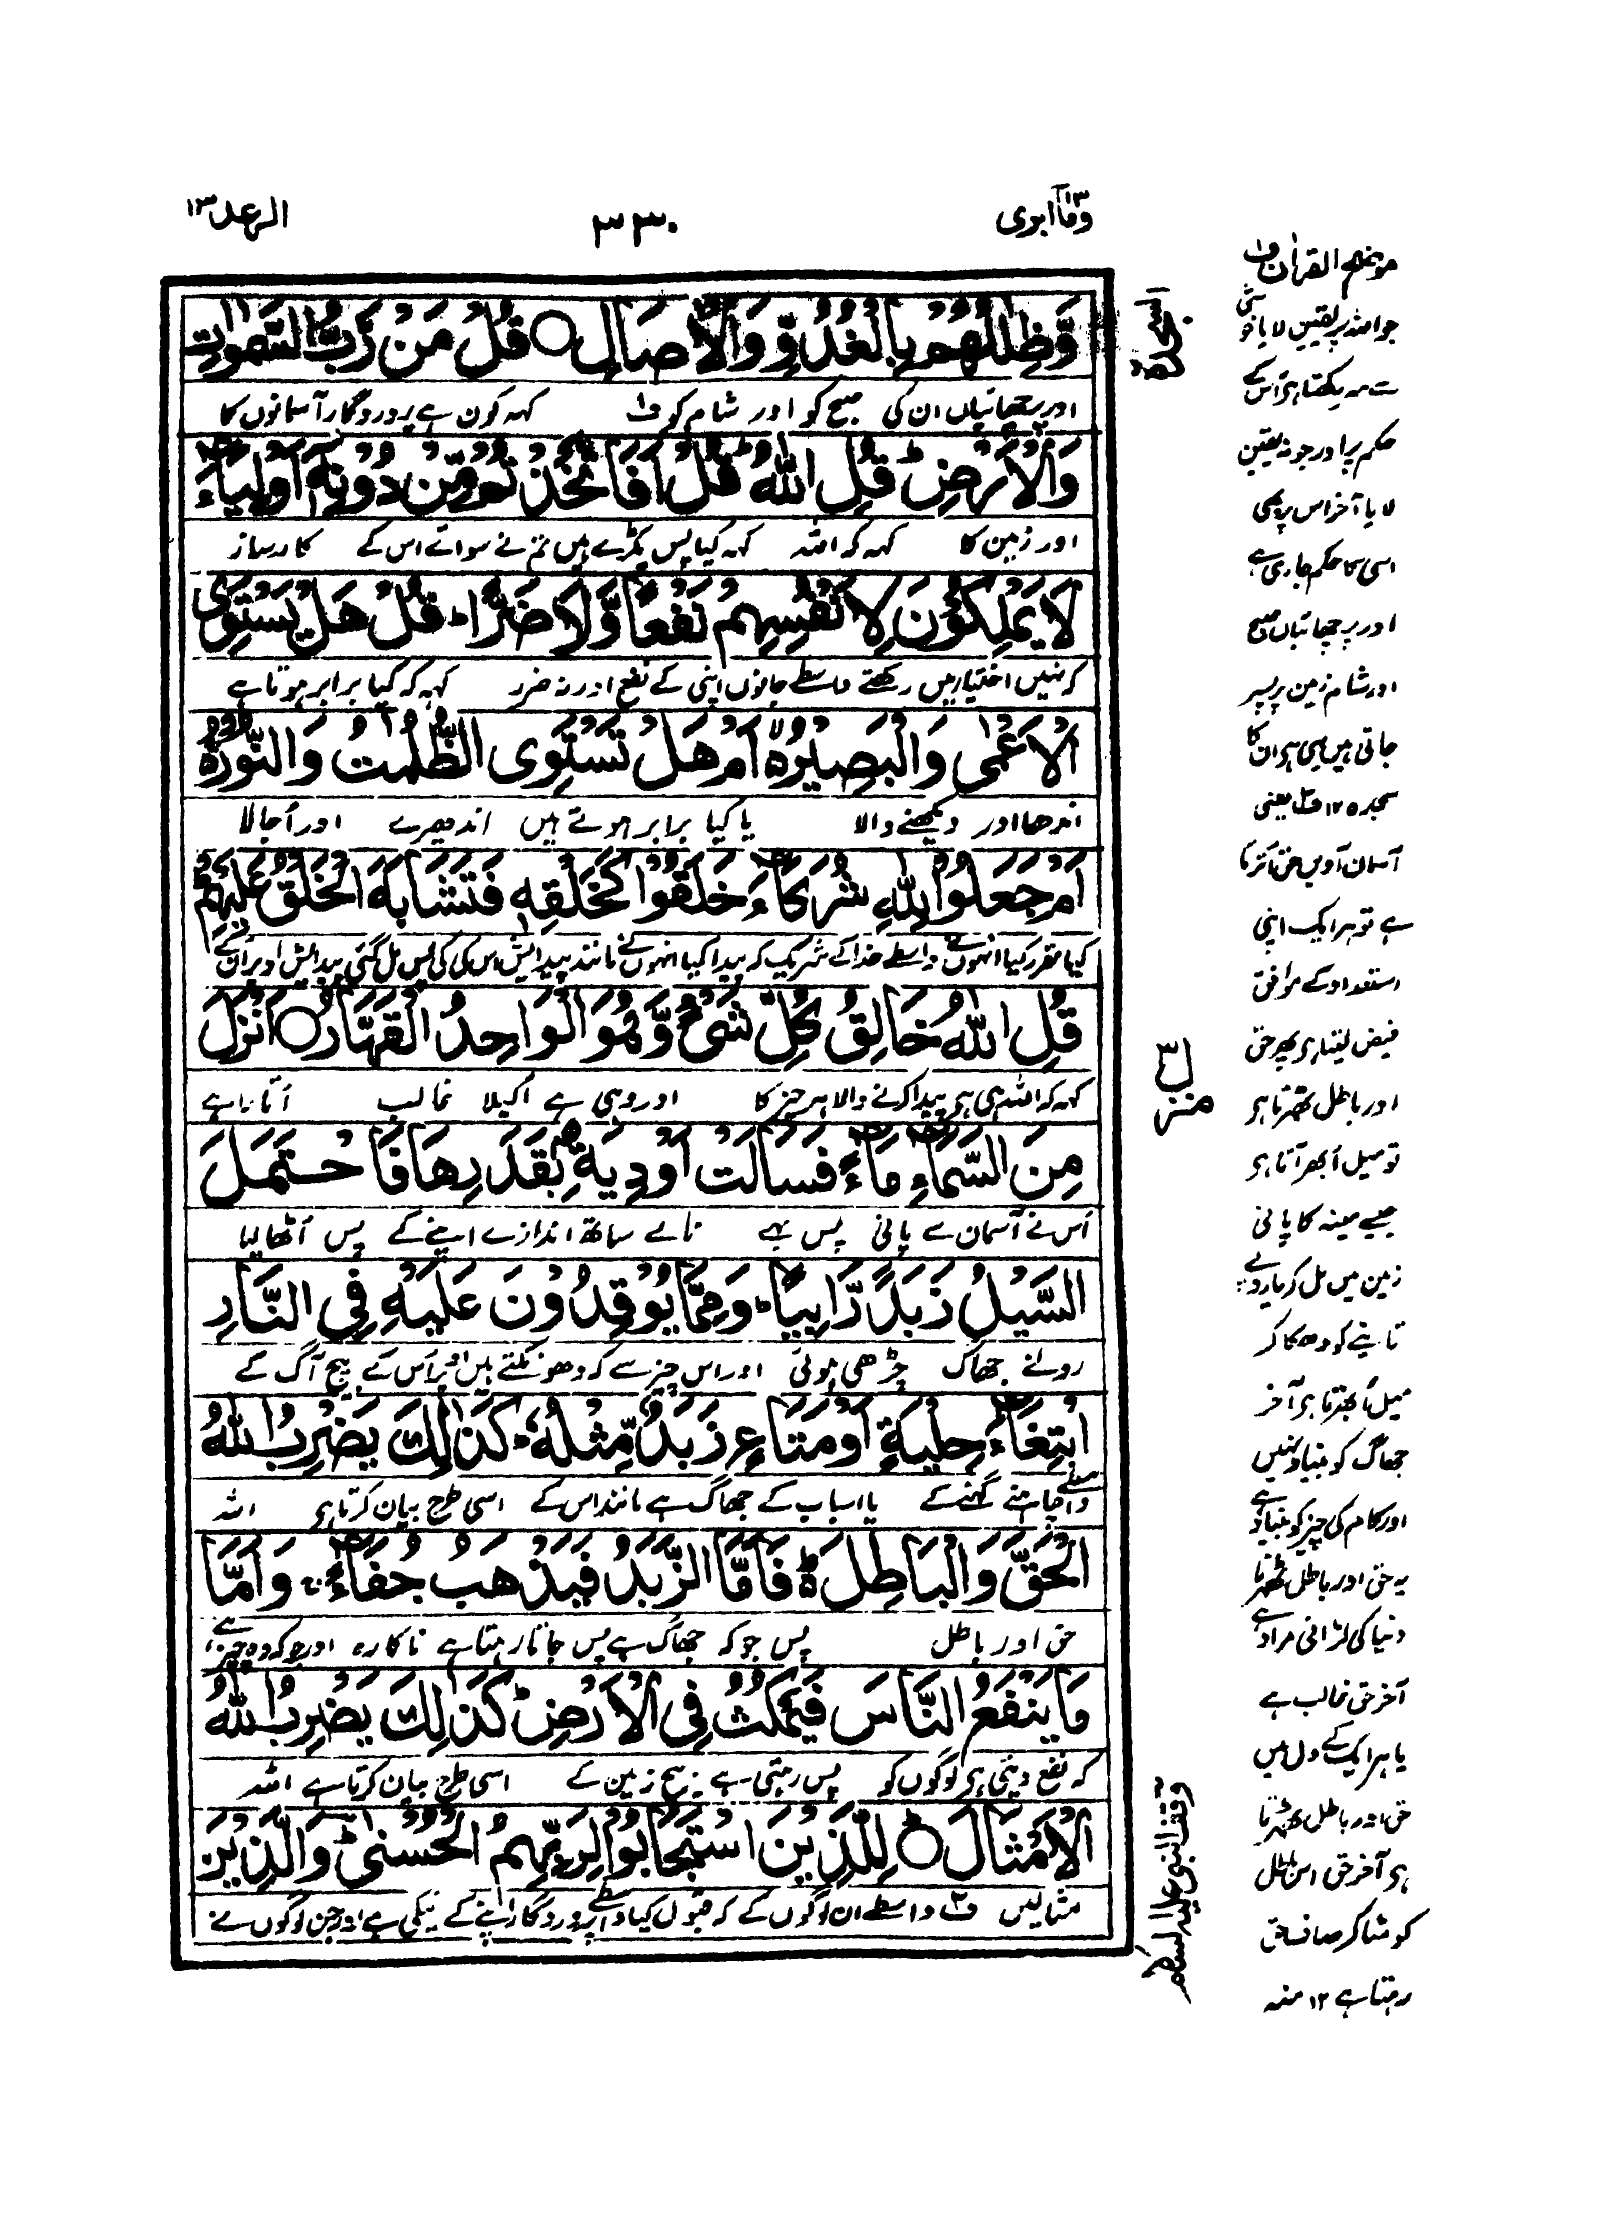 وَمَآ اُبَرِّئُ ١٣
٣٣٠
الرعد ١٣
وَّظِلٰلُهُمْ بِالْغُدُوِّ وَالْاٰصَالِ ○ قُلْ مَنْ رَّبُّ السَّمٰوٰتِ
اور پرچھائیاں ان کی صبح کو اور شام کو ف۱ کہہ کون ہے پروردگار آسمانوں کا
وَالْاَرْضِ ؕ قُلِ اللّٰهُ ؕ قُلْ اَفَاتَّخَذْتُمْ مِّنْ دُوْنِهٖۤ اَوْلِيَآءَ
اور زمین کا کہہ کہ اللہ کہہ کیا پس پکڑے ہیں تم نے سوائے اس کے کارساز
لَا يَمْلِكُوْنَ لِاَنْفُسِهِمْ نَفْعًا وَّلَا ضَرًّا ؕ قُلْ هَلْ يَسْتَوِي
کہ نہیں اختیار میں رکھتے واسطے جانوں اپنی کے نفع اور نہ ضرر کہہ کہ کیا برابر ہوتا ہے
الْاَعْمٰى وَالْبَصِيْرُ ۙ اَمْ هَلْ تَسْتَوِى الظُّلُمٰتُ وَالنُّوْرُ ۚ
اندھا اور دیکھنے والا یا کیا برابر ہوتے ہیں اندھیرے اور اُجالا
اَمْ جَعَلُوْا لِلّٰهِ شُرَكَآءَ خَلَقُوْا كَخَلْقِهٖ فَتَشَابَهَ الْخَلْقُ عَلَيْهِمْ ؕ
کیا مقرر کیا انہوں نے واسطے خدا کے شریک کہ پیدا کیا انہوں نے مانند پیدائش اس کی کی پس مل گئی پیدائش اوپر ان کے
قُلِ اللّٰهُ خَالِقُ كُلِّ شَىْءٍ وَّهُوَ الْوَاحِدُ الْقَهَّارُ ○ اَنْزَلَ
کہہ کہ اللہ ہی ہے پیدا کرنے والا ہر چیز کا اور وہی ہے اکیلا غالب اُتارا ہے
مِنَ السَّمَآءِ مَآءً فَسَالَتْ اَوْدِيَةٌۢ بِقَدَرِهَا فَاحْتَمَلَ
اُس نے آسمان سے پانی پس بہے نالے ساتھ اندازے اپنے کے پس اُٹھا لیا
السَّيْلُ زَبَدًا رَّابِيًا ؕ وَمِمَّا يُوْقِدُوْنَ عَلَيْهِ فِى النَّارِ
رونے جھاگ چڑھی ہوئی اور اس چیز سے کہ دھونکتے ہیں اوپر اُس کے بیچ آگ کے
ابْتِغَآءَ حِلْيَةٍ اَوْ مَتَاعٍ زَبَدٌ مِّثْلُهٗ ؕ كَذٰلِكَ يَضْرِبُ اللّٰهُ
واسطے چاہنے گہنے کے یا اسباب کے جھاگ ہے مانند اس کے اسی طرح بیان کرتا ہے اللہ
الْحَقَّ وَالْبَاطِلَ ؕ۬ فَاَمَّا الزَّبَدُ فَيَذْهَبُ جُفَآءً ۚ وَاَمَّا
حق اور باطل پس جو کہ جھاگ ہے پس جاتا رہتا ہے ناکارہ اور جو کہ وہ چیز ہے
مَا يَنْفَعُ النَّاسَ فَيَمْكُثُ فِى الْاَرْضِ ؕ كَذٰلِكَ يَضْرِبُ اللّٰهُ
کہ نفع دیتی ہے لوگوں کو پس رہتی ہے بیچ زمین کے اسی طرح بیان کرتا ہے اللہ
الْاَمْثَالَ ○ؕ لِلَّذِيْنَ اسْتَجَابُوْا لِرَبِّهِمُ الْحُسْنٰى ؕ وَالَّذِيْنَ
مثالیں ف۲ واسطے ان لوگوں کے کہ قبول کیا واسطے پروردگار اپنے کے نیکی ہے اور جن لوگوں نے
السجدة
منزل ٣
وقف النبی علیہ السلام
موضح القرآن ف۱
جو اللہ پر یقین لایا خوشی
سے سر رکھتا ہے اُس کے
حکم پر اور جو نہ یقین
لایا آخر اس پر بھی
اسی کا حکم جاری ہے
اور پرچھائیاں صبح
اور شام زمین پر پسر
جاتی ہیں یہی ہے ان کا
سجدہ ١٢ ف۲ یعنی
آسمان آدیں حق اُترتا
ہے تو ہر ایک اپنی
استعداد کے موافق
فیض لیتا ہے پھر حق
اور باطل ٹھہرتا ہے
تو میل اُبھر آتا ہے
جیسے مینہ کا پانی
زمین میں مل کر یا روپے
تانبے کو دھکا کر
میل اُبھرتا ہے آخر
جھاگ کو بنیاد نہیں
اور کام کی چیز کو بنیاد ہے
یہ حق اور باطل ٹھہرتا
دنیا کی لڑائی مراد ہے
آخر حق غالب ہے
یا ہر ایک کے دل میں
حق اور باطل ٹھہرتا
ہے آخر حق اس باطل
کو مٹا کر صاف حق
رہتا ہے ١٢ منہ